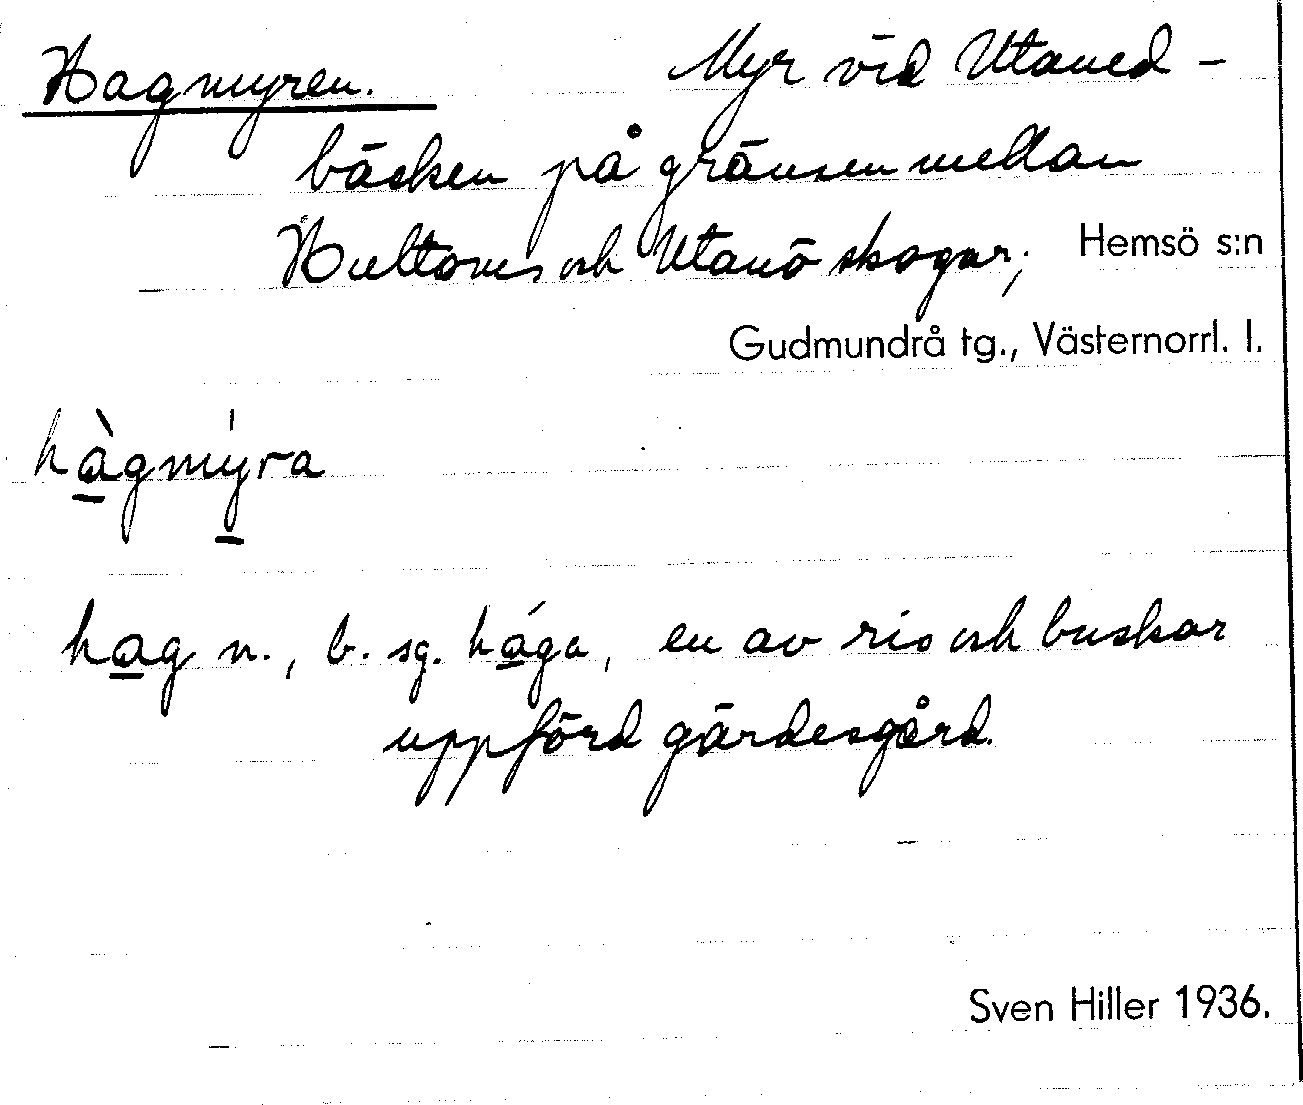 Hagmyren. Myr vid Utaned-
bäcken på gränsen mellan
Hultoms och Utanö skogar; Hemsö s:n
Gudmundrå tg., Västernorrl. l.
hàgmy̍ra
hag n., b. sg. hága, en av ris och buskar
uppförd gärdesgård.
Sven Hiller 1936.